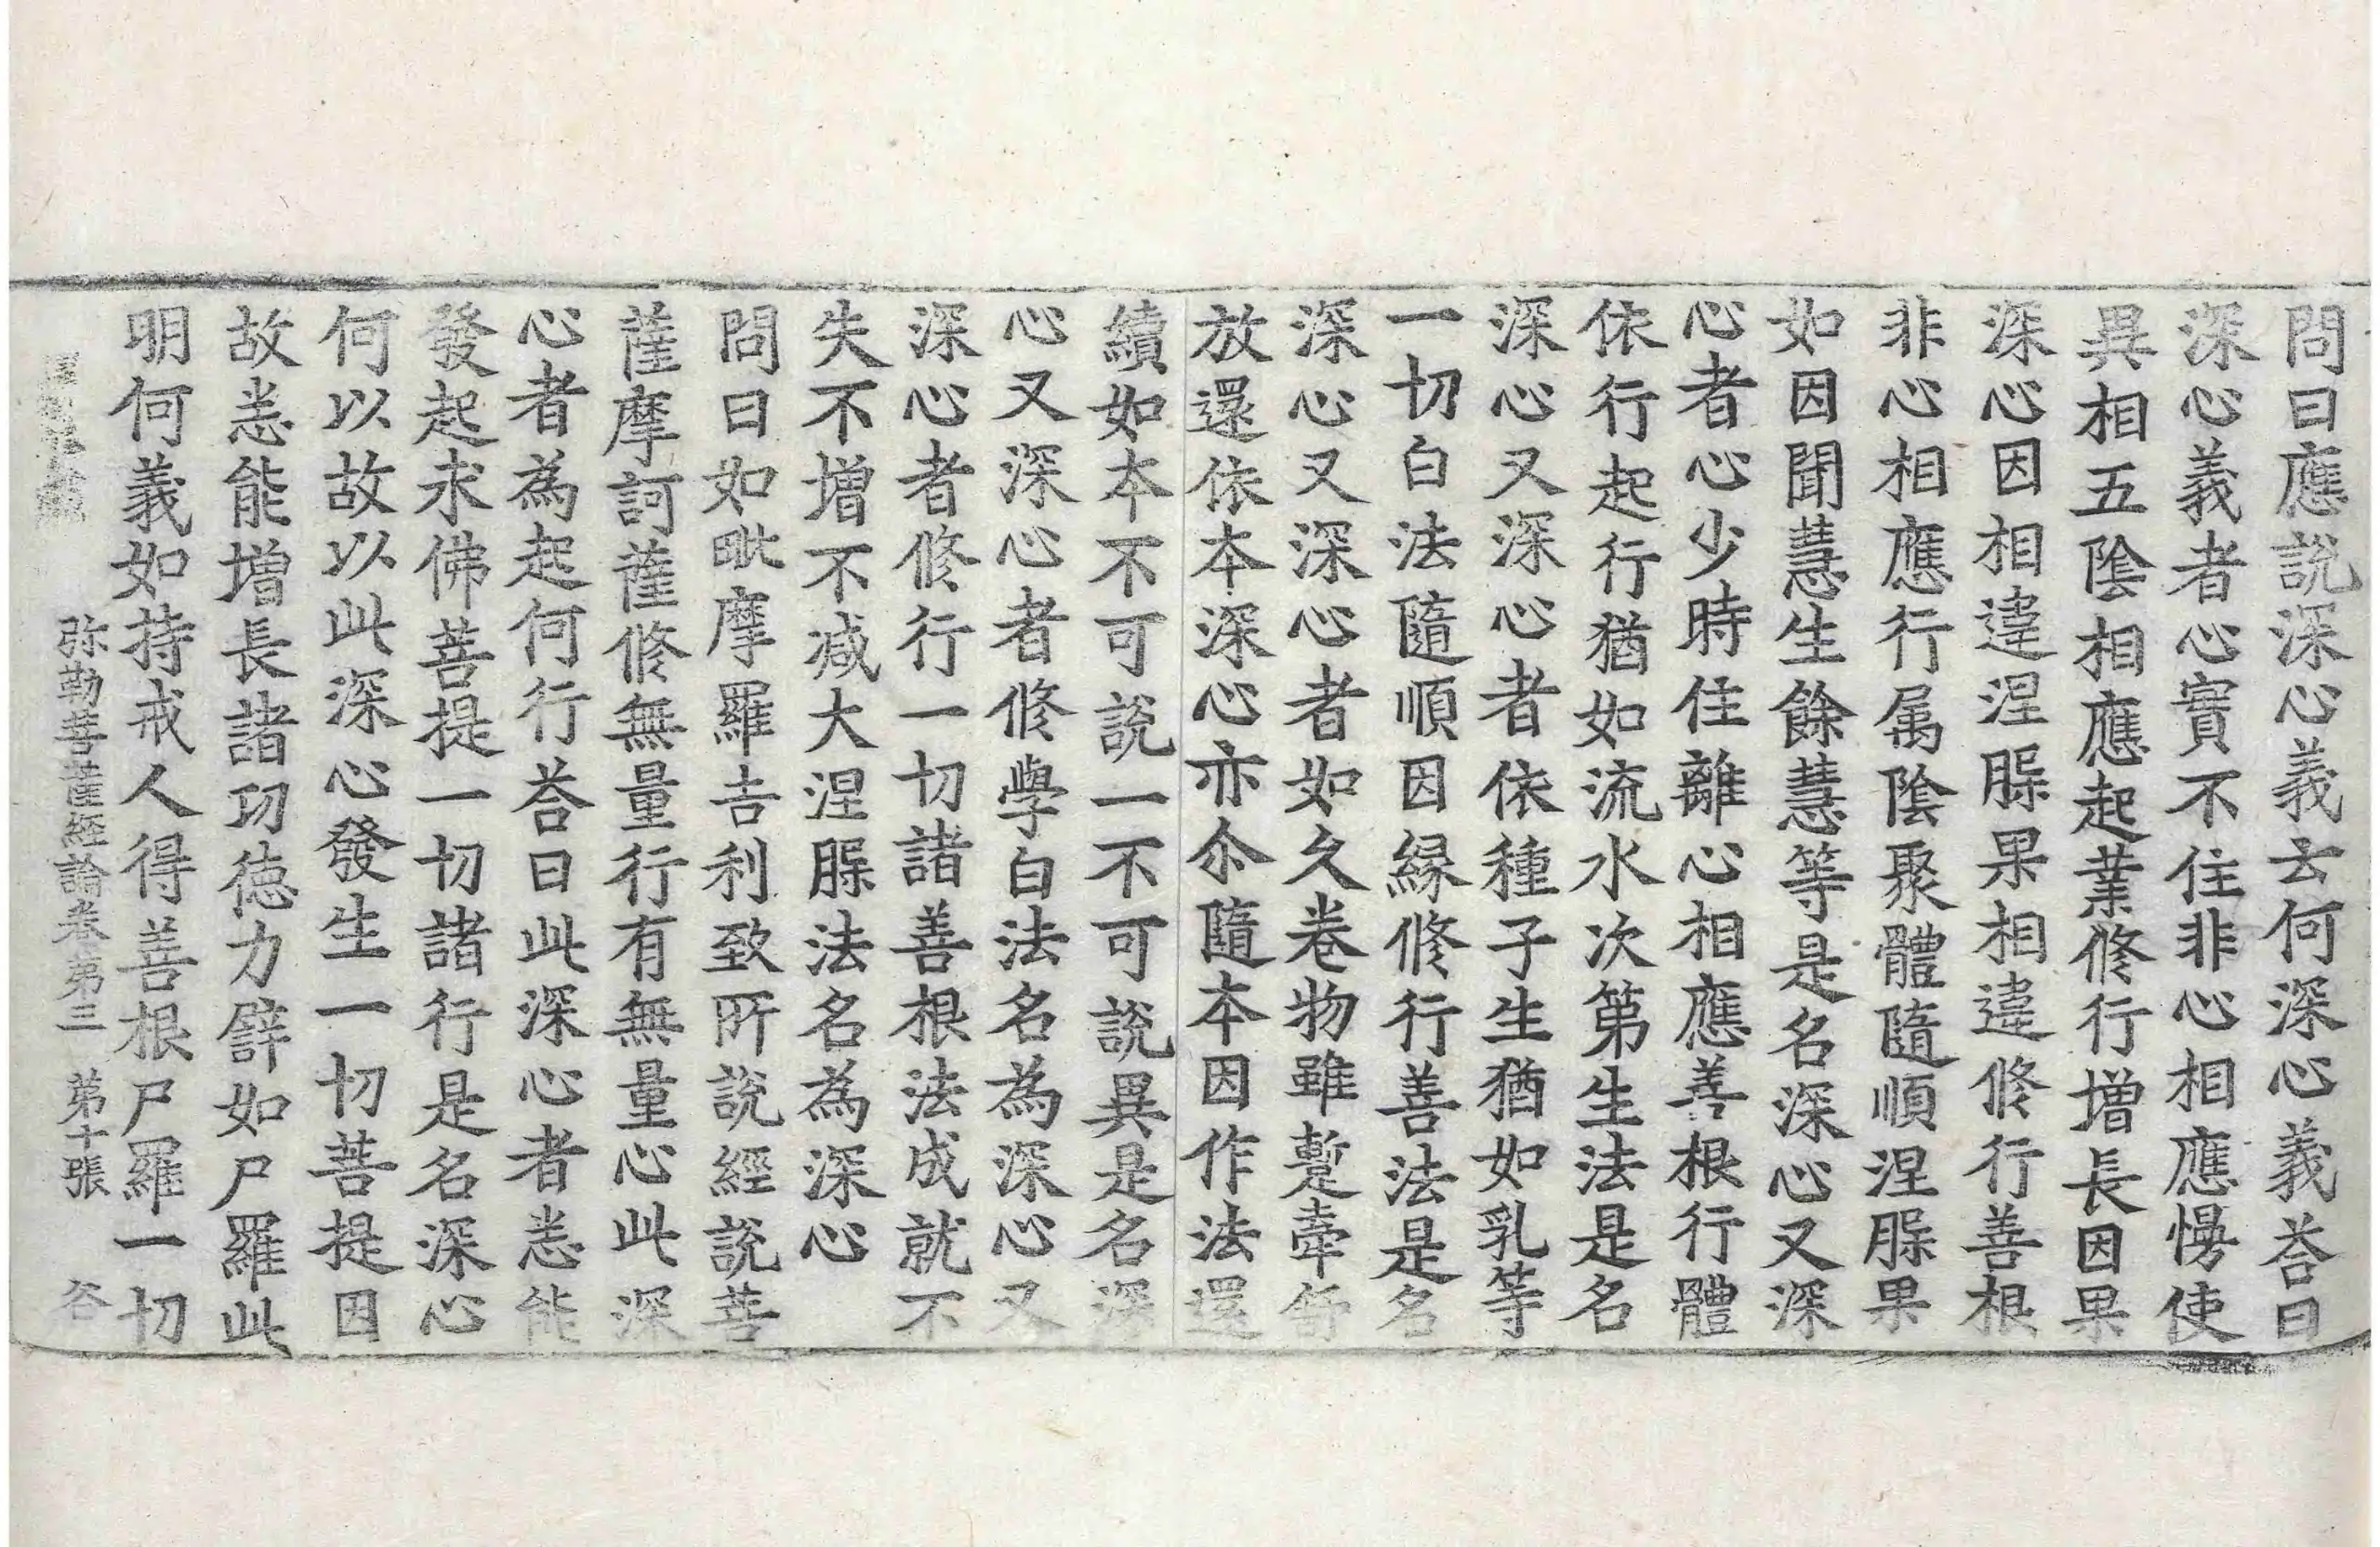 問曰應說深心義云何深心義荅曰
深心義者心實不住非心相應慢使
異相五陰相應起業修行增長因果
深心因相違涅槃果相違修行善根
非心相應行属陰聚體隨順涅槃果
如因聞慧生餘慧等是名深心又深
心者心少時住離心相應善根行體
依行起行猶如流水次第生法是名
深心又深心者依種子生猶如乳等
一切白法隨順因緣修行善法是名
深心又深心者如久卷物雖蹔牽舒
放還依本深心亦尒隨本因作法還
續如本不可說一不可說異是名深
心又深心者修學白法名為深心又
深心者修行一切諸善根法成就不
失不增不減大涅槃法名為深心
問曰如毗摩羅吉利致所說經說菩
薩摩訶薩修無量行有無量心此深
心者為起何行荅曰此深心者恙能
發起求佛菩提一切諸行是名深心
何以故以此深心發生一切菩提因
故恙能增長諸功德力譬如尸羅此
明何義如持戒人得善根尸羅一切
弥勒菩薩經論卷第三 第十張 谷